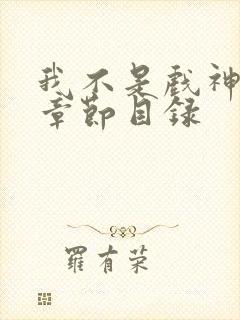 我不是戲神
章節目錄
羅有榮